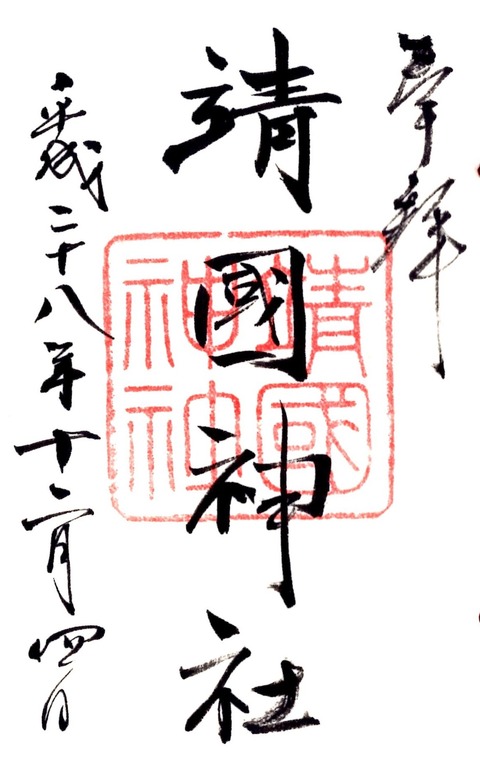 奉拝
靖國神社
平成二十八年十二月四日
靖國
神社